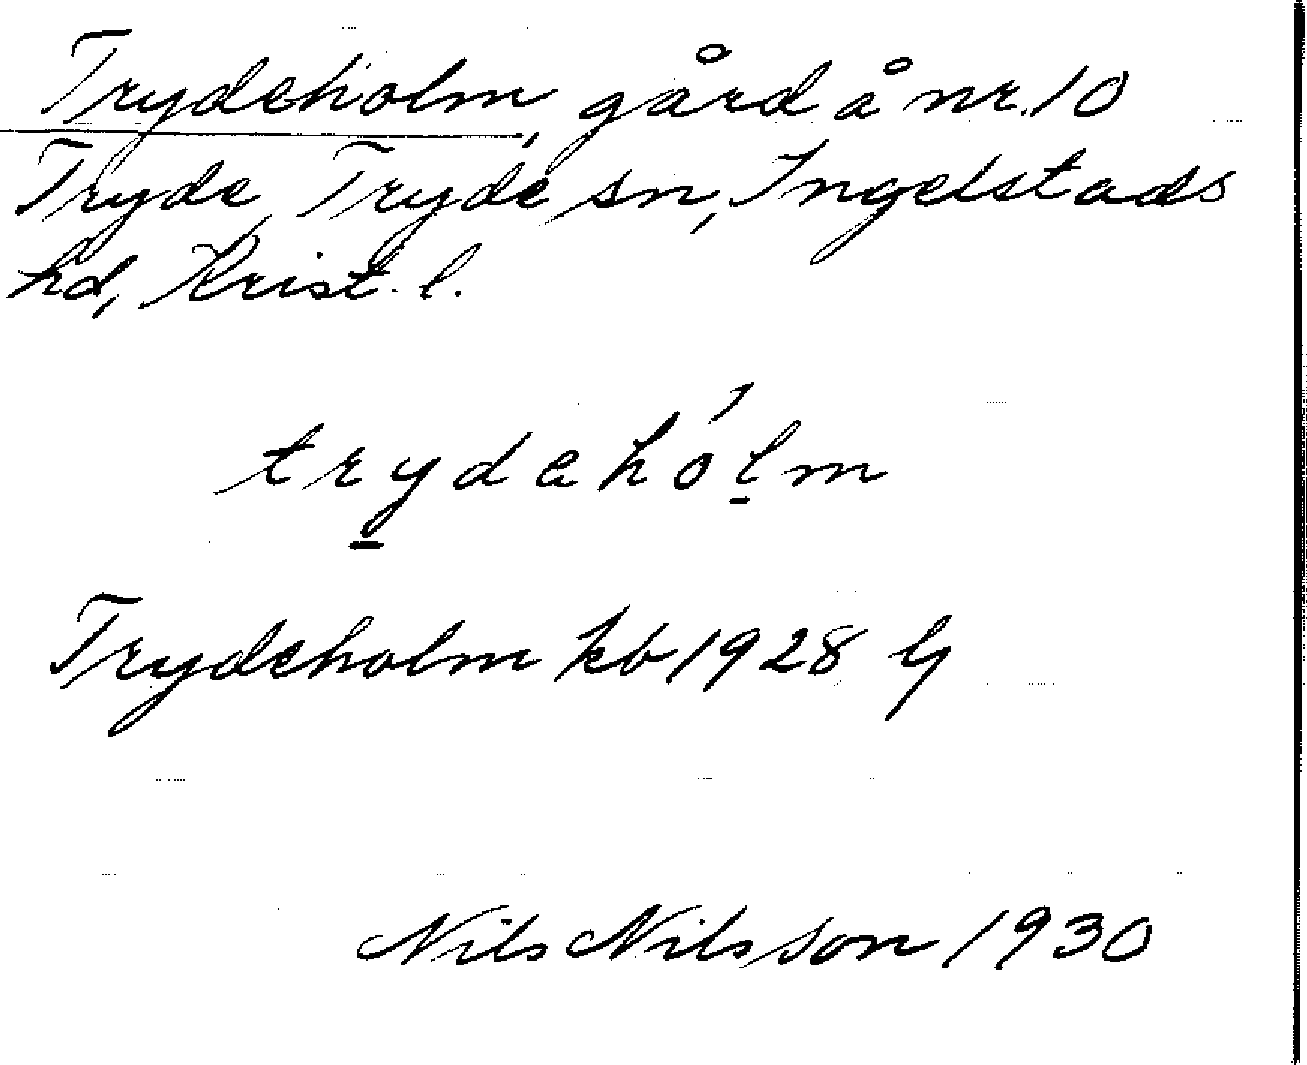 Trydeholm, gård å nr. 10
Tryde, Tryde sn, Ingelstads
hd, Krist. l.
trydəhól̠m
Trydeholm kb 1928 G
Nils Nilsson 1930